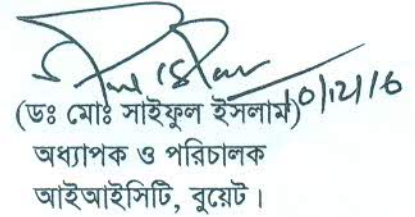 ১০/১২/১৬
(ডঃ মোঃ সাইফুল ইসলাম)
অধ্যাপক ও পরিচালক
আইআইসিটি, বুয়েট।